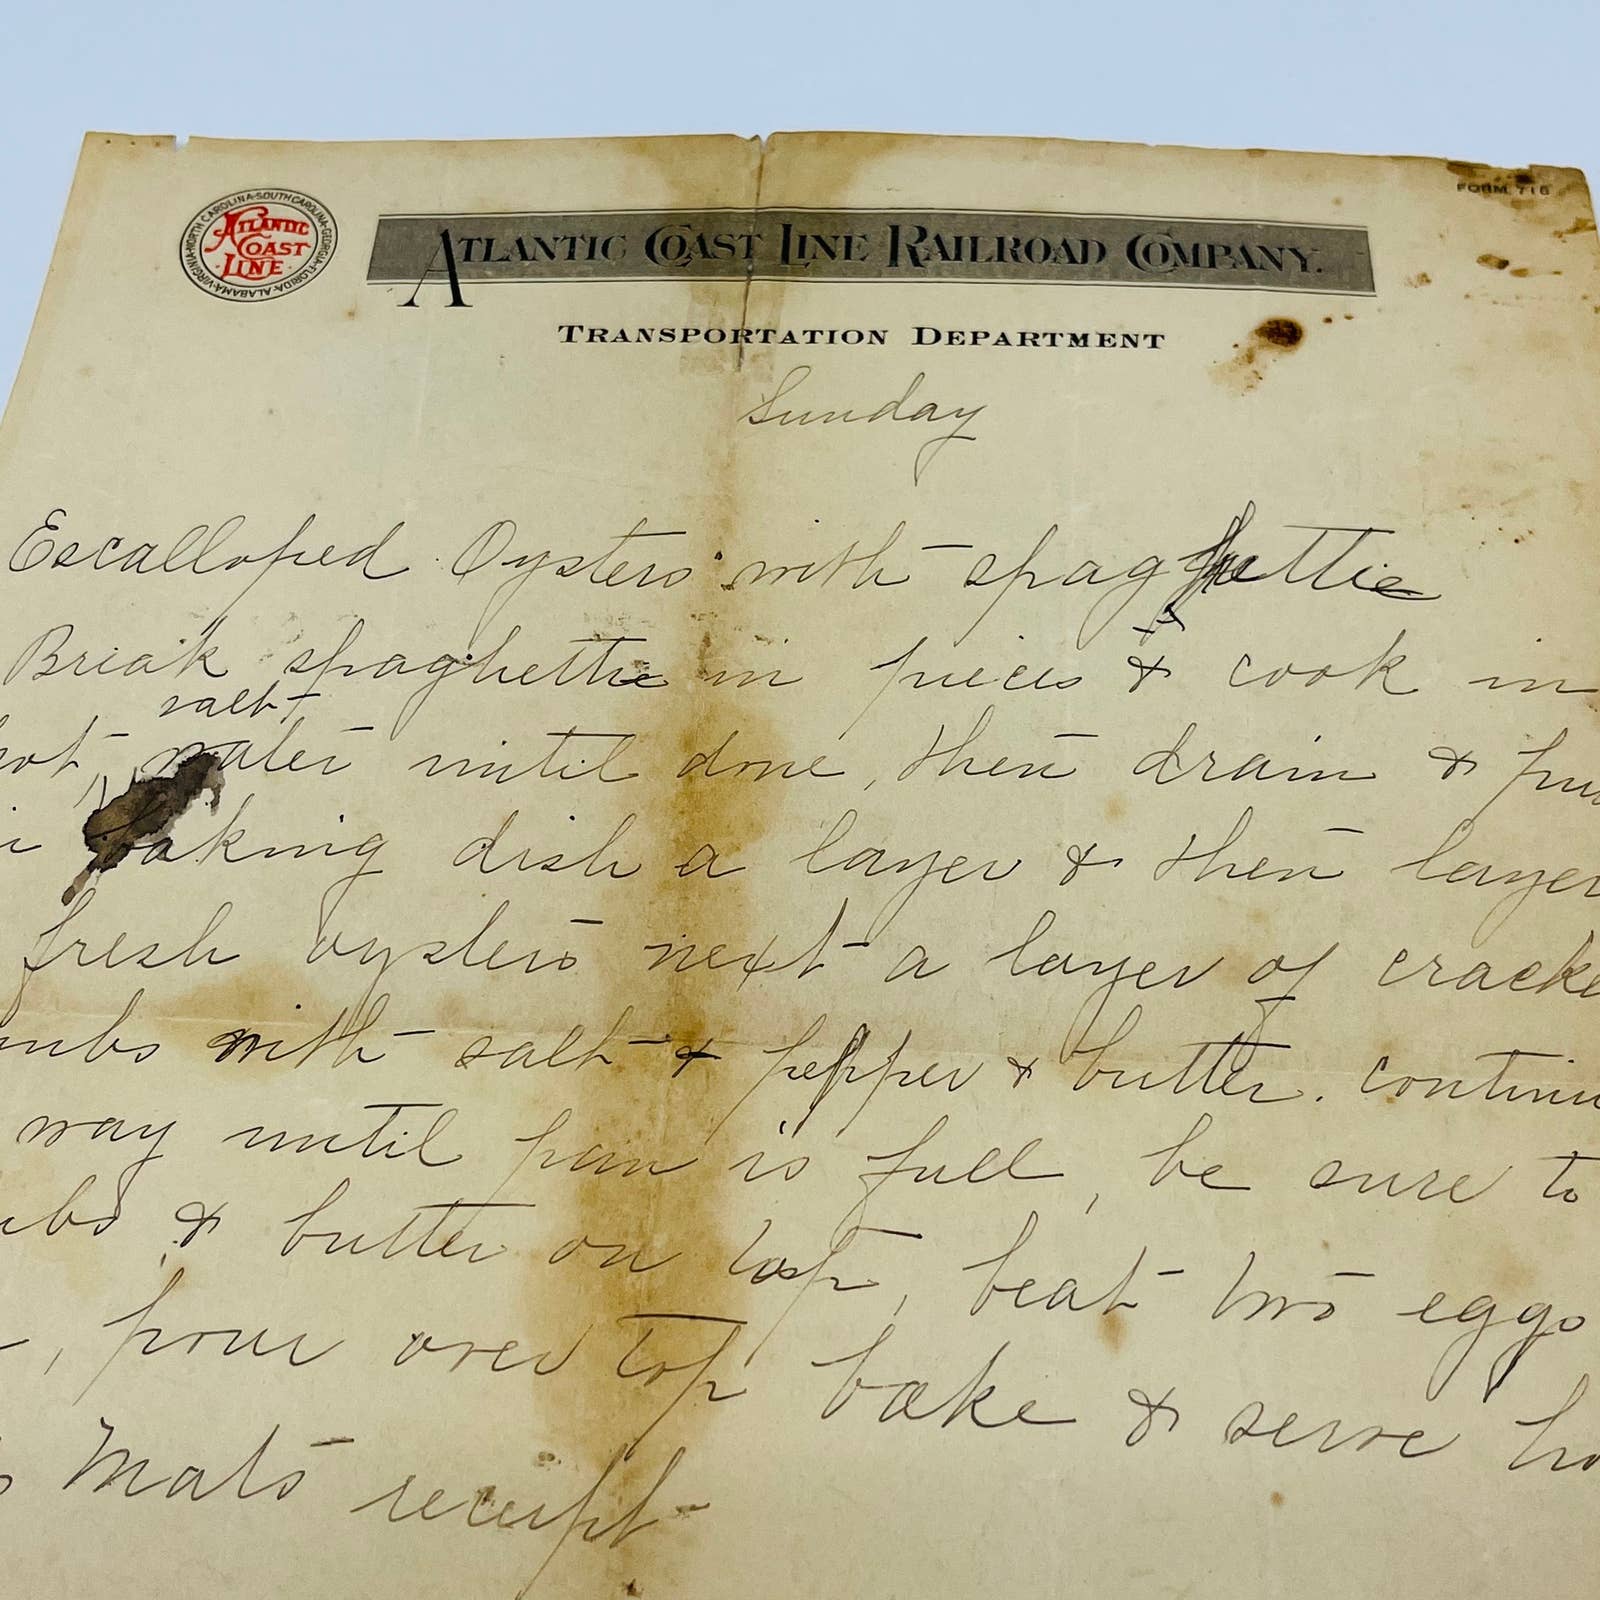 NORTH CAROLINA-SOUTH CAROLINA-GEORGIA-FLORIDA-ALABAMA-VIRGINIA
ATLANTIC
COAST
LINE
FORM 716
ATLANTIC COAST LINE RAILROAD COMPANY.
TRANSPORTATION DEPARTMENT
Sunday
Escalloped Oysters with spaghettie
Break spaghettie in pieces & cook in
salt
hot, water until done, then drain & pu
baking dish a layer & then layer
fresh oysters next a layer of cracke
mbs with salt & pepper & butter. continu
way until pan is full, be sure to
mbs & butter on top, beat two eggs
, pour over top bake & serve ho
Mats receipt